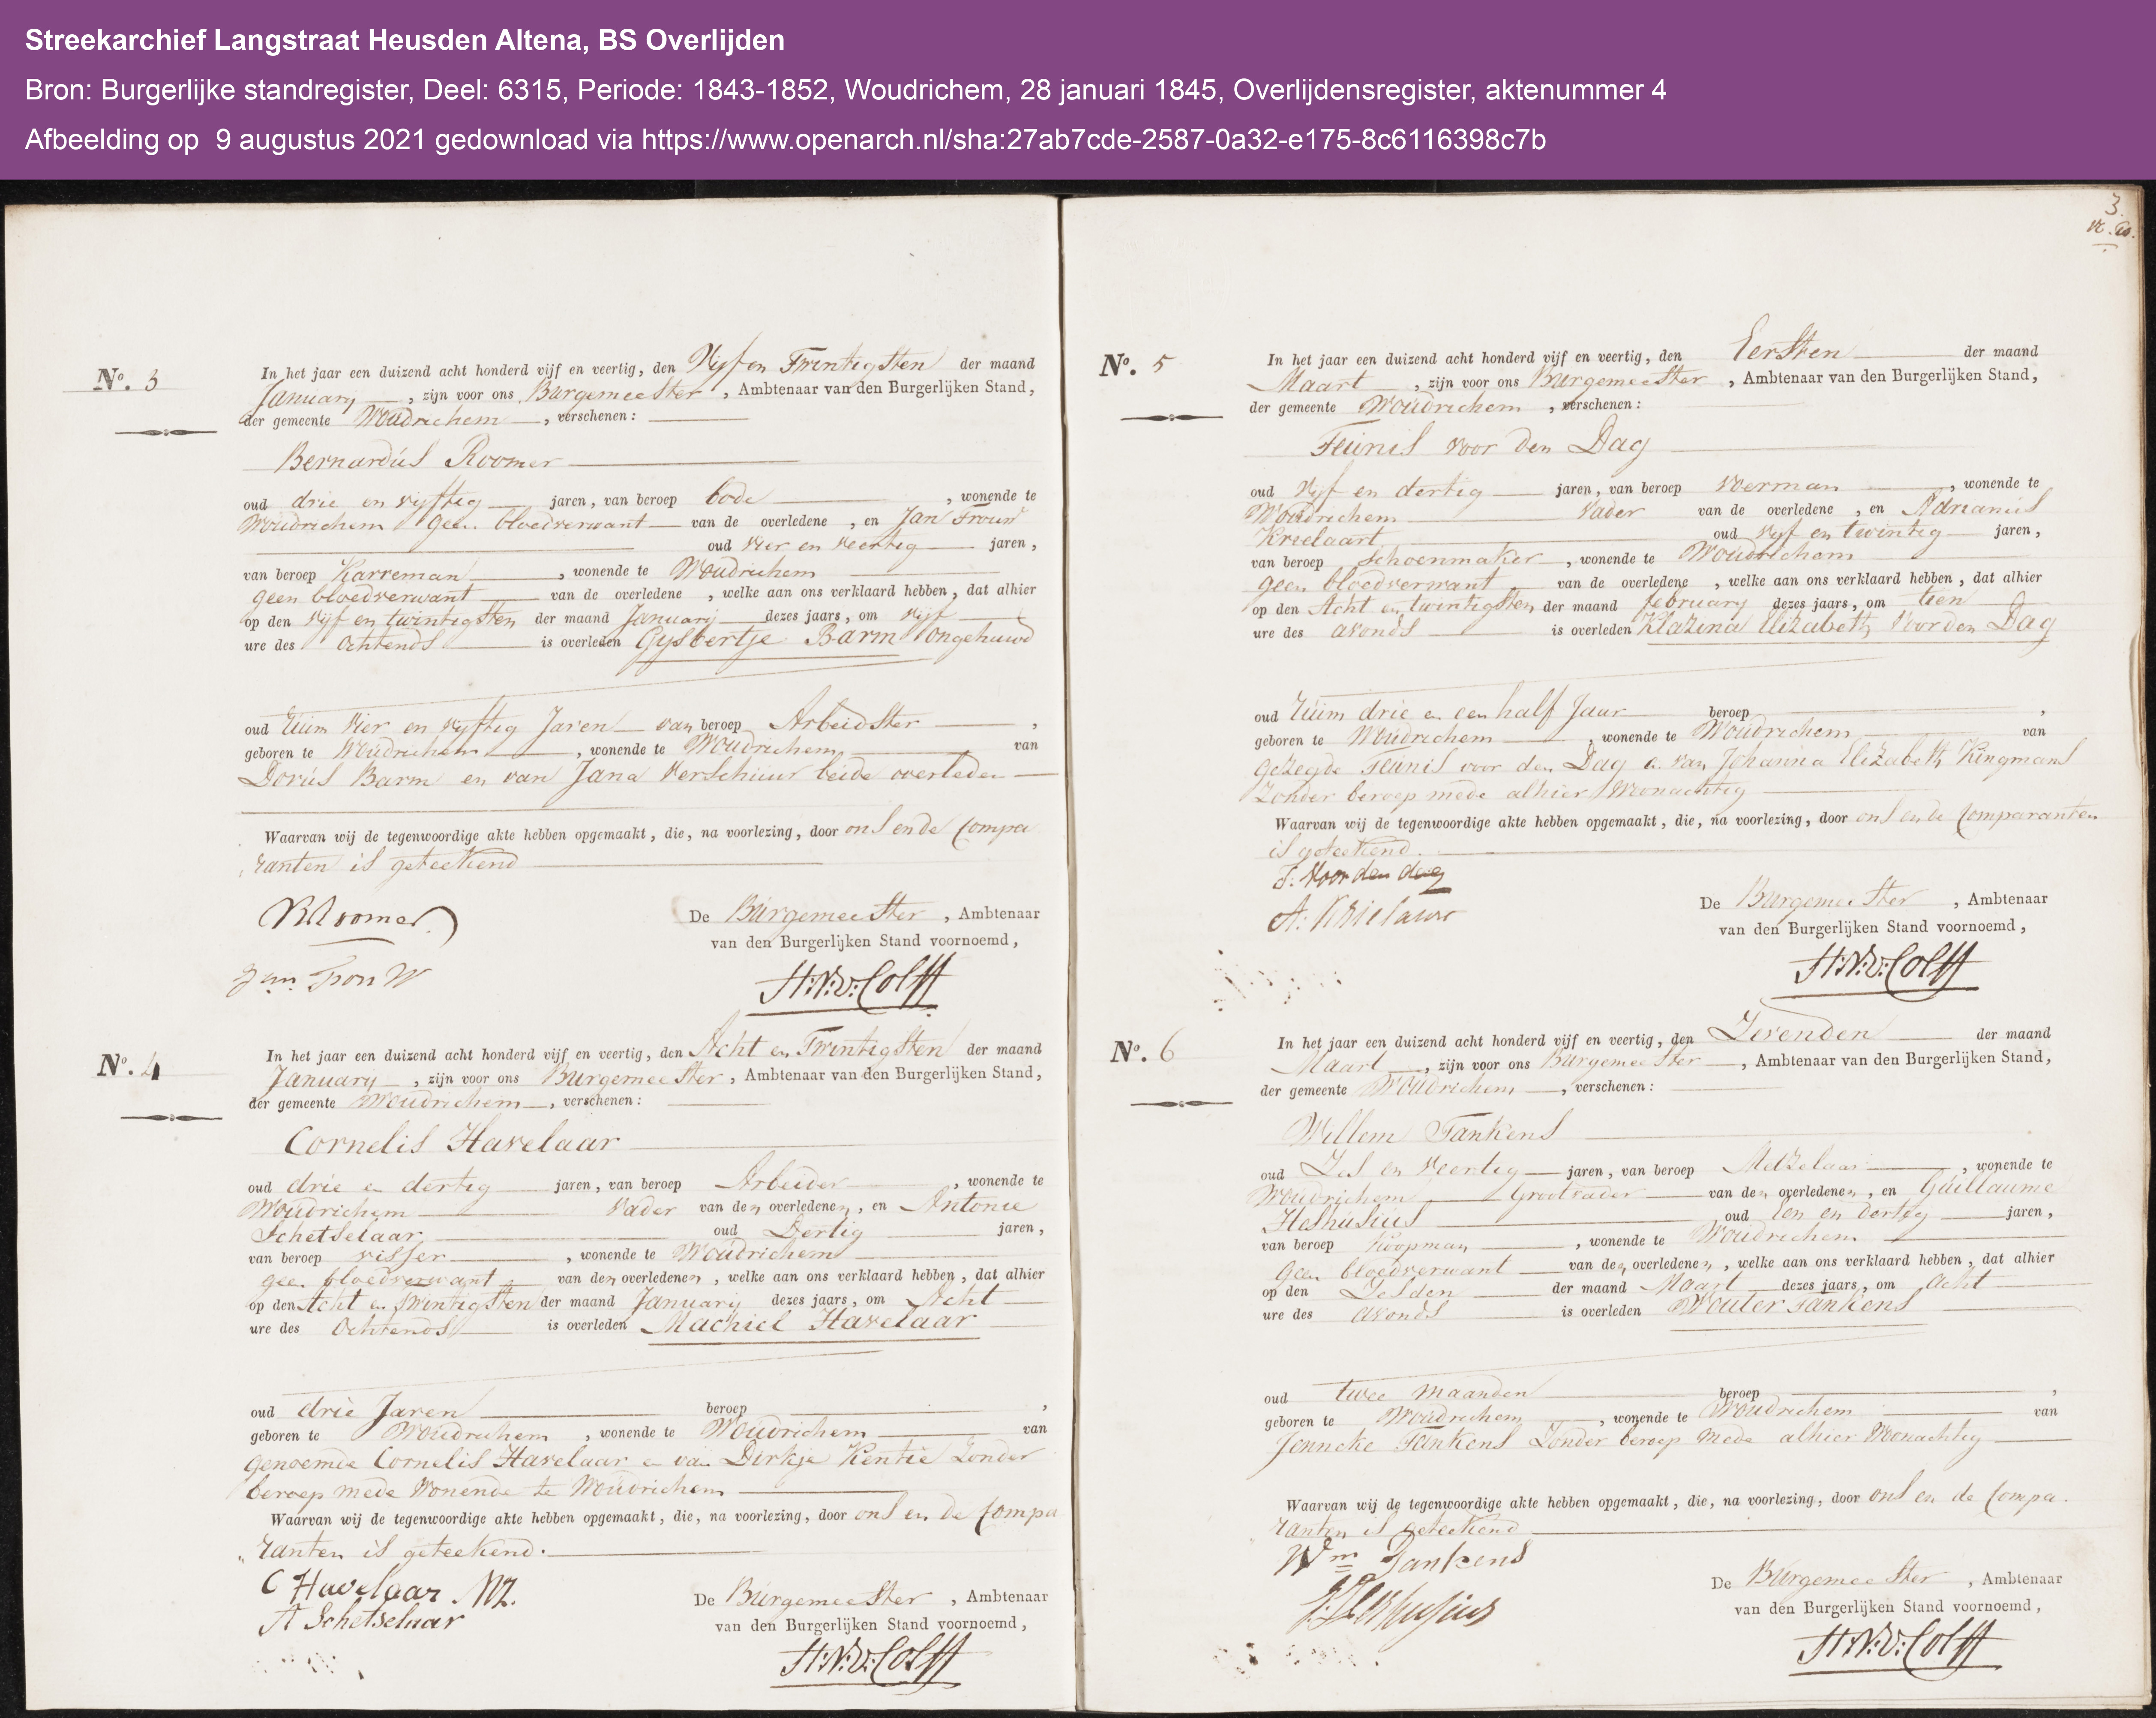 Streekarchief Langstraat Heusden Altena, BS Overlijden
Bron: Burgerlijke standregister, Deel: 6315, Periode: 1843-1852, Woudrichem, 28 januari 1845, Overlijdensregister, aktenummer 4
Afbeelding op 9 augustus 2021 gedownload via https://www.openarch.nl/sha:27ab7cde-2587-0a32-e175-8c6116398c7b
No. 3
In het jaar een duizend acht honderd vijf en veertig, den Vijf en Twintigsten der maand
January, zijn voor ons Burgemeester, Ambtenaar van den Burgerlijken Stand,
der gemeente Woudrichem, verschenen:
Bernardus Roomer
oud drie en vijftig jaren, van beroep bode, wonende te
Woudrichem geen bloedverwant van de overledene, en Jan Trouw
oud vier en veertig jaren,
van beroep Karreman, wonende te Woudrichem
geen bloedverwant van de overledene, welke aan ons verklaard hebben, dat alhier
op den vijf en twintigsten der maand January dezes jaars, om vijf
ure des ochtends is overleden Gijsbertje Barm ongehuwd
oud ruim vier en vijftig Jaren van beroep Arbeidster,
geboren te Woudrichem, wonende te Woudrichem, van
Dorus Barm en van Jana Verschuur beide overleden
Waarvan wij de tegenwoordige akte hebben opgemaakt, die, na voorlezing, door ons en de Compa
ranten is geteekend
BRoomer
Jan Trouw
De Burgemeester, Ambtenaar
van den Burgerlijken Stand voornoemd,
H:N:v:Colff
No. 4
In het jaar een duizend acht honderd vijf en veertig, den Acht en Twintigsten der maand
January, zijn voor ons Burgemeester, Ambtenaar van den Burgerlijken Stand,
der gemeente Woudrichem, verschenen:
Cornelis Havelaar
oud drie en dertig jaren, van beroep Arbeider, wonende te
Woudrichem Vader van den overledenen, en Antonie
Schetselaar oud Dertig jaren,
van beroep visser, wonende te Woudrichem
geen bloedverwant van den overledenen, welke aan ons verklaard hebben, dat alhier
op den Acht en Twintigsten der maand January dezes jaars, om Acht
ure des Ochtends is overleden Machiel Havelaar
oud drie Jaren beroep ,
geboren te Woudrichem, wonende te Woudrichem van
genoemde Cornelis Havelaar en van Dirkje Kentie Zonder
beroep mede Wonende te Woudrichem
Waarvan wij de tegenwoordige akte hebben opgemaakt, die, na voorlezing, door ons en de Compa
ranten is geteekend.
C Havelaar MZ.
A Schetselaar
De Burgemeester, Ambtenaar
van den Burgerlijken Stand voornoemd,
H:N:v:Colff
3.
No. 5
In het jaar een duizend acht honderd vijf en veertig, den Eersten der maand
Maart, zijn voor ons Burgemeester, Ambtenaar van den Burgerlijken Stand,
der gemeente Woudrichem, verschenen:
Teunis voor den Dag
oud vijf en dertig jaren, van beroep voerman, wonende te
Woudrichem Vader van de overledene, en Adrianus
Krielaart oud vijf en twintig jaren,
van beroep Schoenmaker, wonende te Woudrichem
geen bloedverwant van de overledene, welke aan ons verklaard hebben, dat alhier
op den Acht en twintigsten der maand february dezes jaars, om tien
ure des avonds is overleden Klazina Elizabeth Voorden Dag
oud ruim drie en een half Jaar beroep ,
geboren te Woudrichem, wonende te Woudrichem van
gezegde Teunis voor den Dag en van Johanna Elizabeth Kingmans
Zonder beroep mede alhier Woonachtig
Waarvan wij de tegenwoordige akte hebben opgemaakt, die, na voorlezing, door ons en de Comparanten
is geteekend.
T: Voor den dag
De Burgemeester, Ambtenaar
van den Burgerlijken Stand voornoemd,
H:N:v:Colff
No. 6
In het jaar een duizend acht honderd vijf en veertig, den Zevenden der maand
Maart, zijn voor ons Burgemeester, Ambtenaar van den Burgerlijken Stand,
der gemeente Woudrichem, verschenen:
Willem Tankens
oud Zes en Veertig jaren, van beroep Metzelaar, wonende te
Woudrichem, Grootvader van den overledenen, en Guillaume
Heshusius oud een en dertig jaren,
van beroep Koopman, wonende te Woudrichem
geen bloedverwant van den overledenen, welke aan ons verklaard hebben, dat alhier
op den Zesden der maand Maart dezes jaars, om acht
ure des avonds is overleden Wouter Tankens
oud twee maanden beroep ,
geboren te Woudrichem, wonende te Woudrichem van
Jenneke Tankens Zonder beroep mede alhier Woonachtig
Waarvan wij de tegenwoordige akte hebben opgemaakt, die, na voorlezing, door ons en de Compa
ranten is geteekend
Wm Tankens
De Burgemeester, Ambtenaar
van den Burgerlijken Stand voornoemd,
H:N:v:Colff